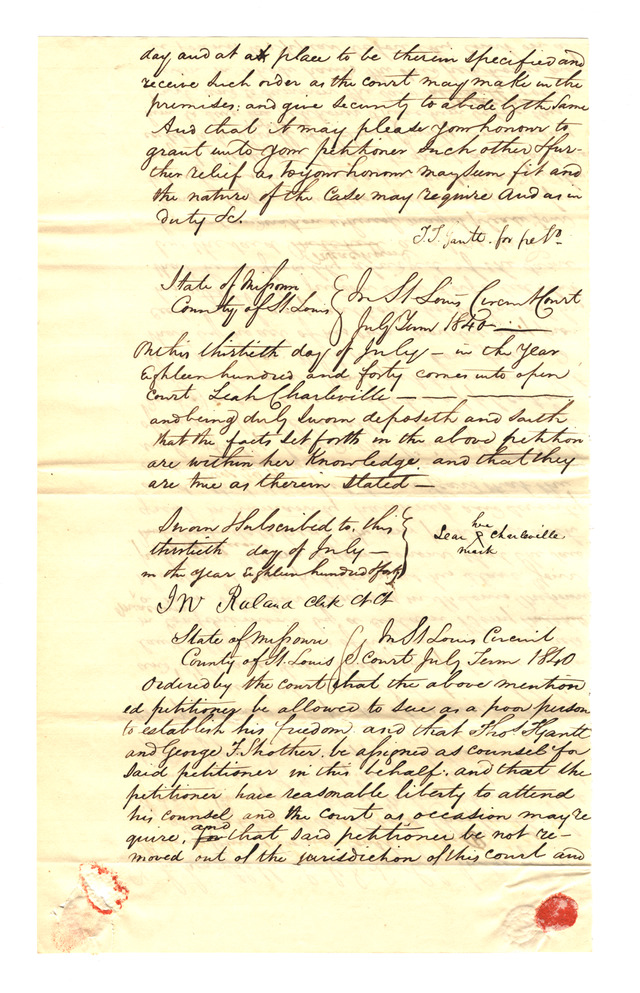 day and at a place to be therein specified and
receive such order as the court may make in the
premises: and give security to abide by the same
And that it may please your honour to
grant unto your petitioner such other & fur-
ther relief as to your honour may seem fit and
the nature of the case may require And as in
duty &c.
T.T. Gantt. for petr.
State of Missouri
County of St. Louis
In St Louis Circuit Court
July Term 1840
On this thirtieth day of July – in the Year
Eighteen hundred and forty comes into open
court Leah Charleville
and being duly sworn deposeth and saith
that the facts set forth in the above petition
are within her Knowledge, and that they
are true as therein stated –
Sworn & subscribed to, this
thirtieth day of July –
in the year Eighteen hundred & forty
her
Leah Charleville
mark
Jn Ruland Clk
State of Missouri
County of St. Louis
In St Louis Circuit
Court July Term 1840
Ordered by the court that the above mention
ed petitioner be allowed to sue as a poor person
to establish his freedom and that Thos T Gantt
and George F. Strother. be assigned as counsel for
said petitioner in this behalf: and that the
petitioner have reasonable liberty to attend
his counsel and the court as occasion may re
quire, and that said petitioner be not re-
moved out of the jurisdiction of this court and